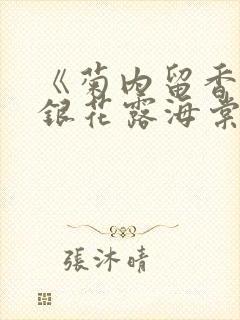 《菊内留香
銀花露海棠
張沐晴